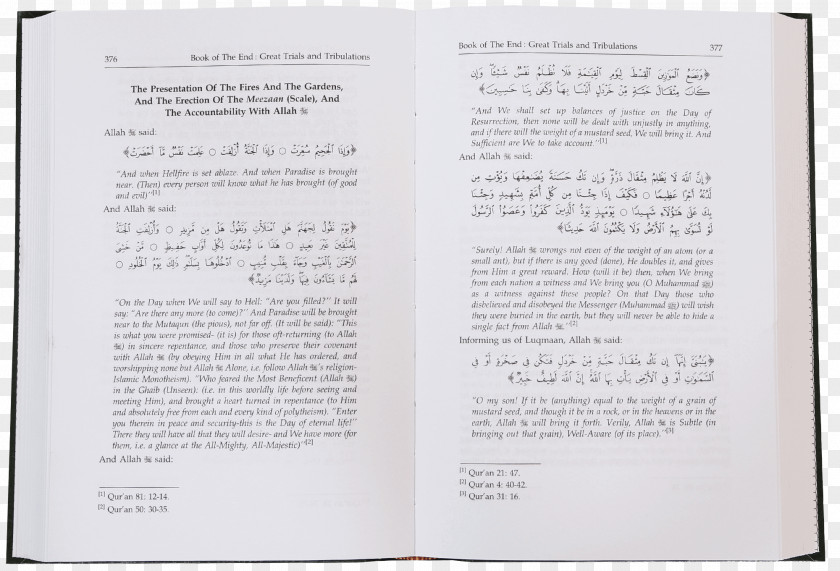 376 Book of The End: Great Trials and Tribulations
The Presentation Of The Fires And The Gardens,
And The Erection Of The Meezaan (Scale), And
The Accountability With Allah ﷻ
Allah ﷻ said:
﴿وَإِذَا ٱلْجَحِيمُ سُعِّرَتْ ○ وَإِذَا ٱلْجَنَّةُ أُزْلِفَتْ ○ عَلِمَتْ نَفْسٌ مَّآ أَحْضَرَتْ﴾
"And when Hellfire is set ablaze. And when Paradise is brought
near. (Then) every person will know what he has brought (of good
and evil)"[1]
And Allah ﷻ said:
﴿يَوْمَ نَقُولُ لِجَهَنَّمَ هَلِ ٱمْتَلَأْتِ وَتَقُولُ هَلْ مِن مَّزِيدٍ ○ وَأُزْلِفَتِ ٱلْجَنَّةُ
لِلْمُتَّقِينَ غَيْرَ بَعِيدٍ ○ هَٰذَا مَا تُوعَدُونَ لِكُلِّ أَوَّابٍ حَفِيظٍ ○ مَّنْ خَشِيَ
ٱلرَّحْمَٰنَ بِٱلْغَيْبِ وَجَآءَ بِقَلْبٍ مُّنِيبٍ ○ ٱدْخُلُوهَا بِسَلَٰمٍ ذَٰلِكَ يَوْمُ ٱلْخُلُودِ ○
لَهُم مَّا يَشَآءُونَ فِيهَا وَلَدَيْنَا مَزِيدٌ﴾
"On the Day when We will say to Hell: "Are you filled?" It will
say: "Are there any more (to come)?" And Paradise will be brought
near to the Mutaqun (the pious), not far off. (It will be said): "This
is what you were promised- (it is) for those oft-returning (to Allah
ﷻ) in sincere repentance, and those who preserve their covenant
with Allah ﷻ (by obeying Him in all what He has ordered, and
worshipping none but Allah ﷻ Alone, i.e. follow Allah ﷻ's religion-
Islamic Monotheism). "Who feared the Most Beneficent (Allah ﷻ)
in the Ghaib (Unseen): (i.e. in this worldly life before seeing and
meeting Him), and brought a heart turned in repentance (to Him
and absolutely free from each and every kind of polytheism). "Enter
you therein in peace and security-this is the Day of eternal life!"
There they will have all that they will desire- and We have more (for
them, i.e. a glance at the All-Mighty, All-Majestic)"[2]
And Allah ﷻ said:
[1] Qur'an 81: 12-14.
[2] Qur'an 50: 30-35.
Book of The End: Great Trials and Tribulations 377
﴿وَنَضَعُ ٱلْمَوَٰزِينَ ٱلْقِسْطَ لِيَوْمِ ٱلْقِيَٰمَةِ فَلَا تُظْلَمُ نَفْسٌ شَيْـًٔا وَإِن
كَانَ مِثْقَالَ حَبَّةٍ مِّنْ خَرْدَلٍ أَتَيْنَا بِهَا وَكَفَىٰ بِنَا حَٰسِبِينَ﴾
"And We shall set up balances of justice on the Day of
Resurrection, then none will be dealt with unjustly in anything,
and if there will the weight of a mustard seed, We will bring it. And
Sufficient are We to take account "[1]
And Allah ﷻ said:
﴿إِنَّ ٱللَّهَ لَا يَظْلِمُ مِثْقَالَ ذَرَّةٍ وَإِن تَكُ حَسَنَةً يُضَٰعِفْهَا وَيُؤْتِ مِن
لَّدُنْهُ أَجْرًا عَظِيمًا ○ فَكَيْفَ إِذَا جِئْنَا مِن كُلِّ أُمَّةٍۭ بِشَهِيدٍ وَجِئْنَا
بِكَ عَلَىٰ هَٰٓؤُلَآءِ شَهِيدًا ○ يَوْمَئِذٍ يَوَدُّ ٱلَّذِينَ كَفَرُوا۟ وَعَصَوُا۟ ٱلرَّسُولَ
لَوْ تُسَوَّىٰ بِهِمُ ٱلْأَرْضُ وَلَا يَكْتُمُونَ ٱللَّهَ حَدِيثًا﴾
"Surely! Allah ﷻ wrongs not even of the weight of an atom (or a
small ant), but if there is any good (done), He doubles it, and gives
from Him a great reward. How (will it be) then, when We bring
from each nation a witness and We bring you (O Muhammad ﷺ)
as a witness against these people? On that Day those who
disbelieved and disobeyed the Messenger (Muhammad ﷺ) will wish
they were buried in the earth, but they will never be able to hide a
single fact from Allah ﷻ."[2]
Informing us of Luqmaan, Allah ﷻ said:
﴿يَٰبُنَىَّ إِنَّهَآ إِن تَكُ مِثْقَالَ حَبَّةٍ مِّنْ خَرْدَلٍ فَتَكُن فِى صَخْرَةٍ أَوْ فِى
ٱلسَّمَٰوَٰتِ أَوْ فِى ٱلْأَرْضِ يَأْتِ بِهَا ٱللَّهُ إِنَّ ٱللَّهَ لَطِيفٌ خَبِيرٌ﴾
"O my son! If it be (anything) equal to the weight of a grain of
mustard seed, and though it be in a rock, or in the heavens or in the
earth, Allah ﷻ will bring it forth. Verily, Allah ﷻ is Subtle (in
bringing out that grain), Well-Aware (of its place)."[3]
[1] Qur'an 21: 47.
[2] Qur'an 4: 40-42.
[3] Qur'an 31: 16.